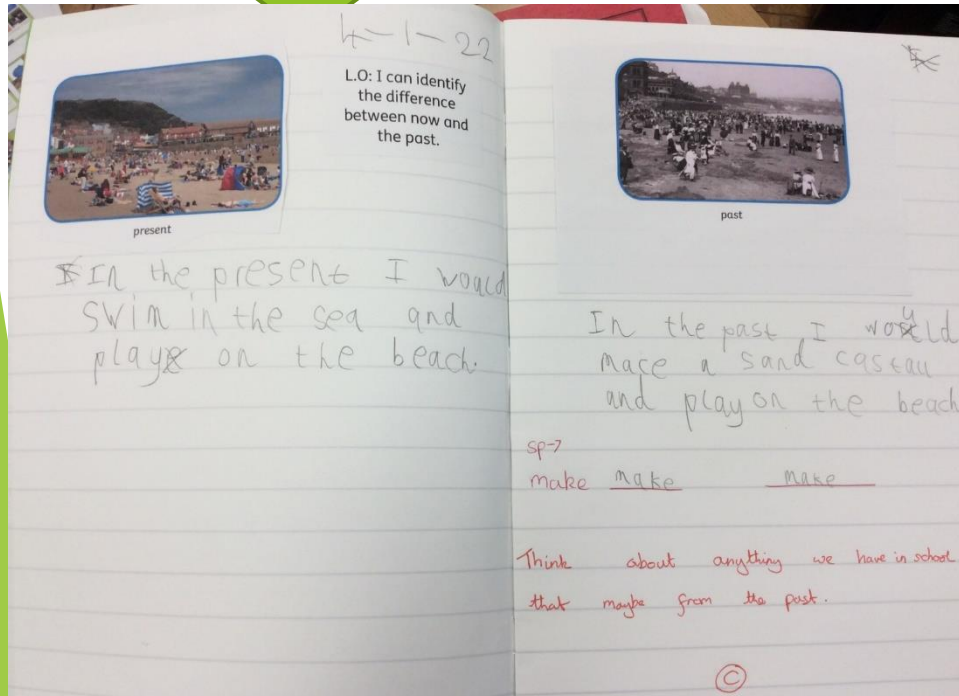 4-1-22
L.O: I can identify
the difference
between now and
the past.
present
In the present I woucd
swim in the sea and
play on the beach.
past
In the past I would
mace a sand castau
and play on the beach
sp→
make make make
Think about anything we have in school
that maybe from the past.
C